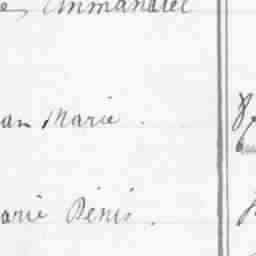 Emmanuel
an Marie .
arie Dénis .